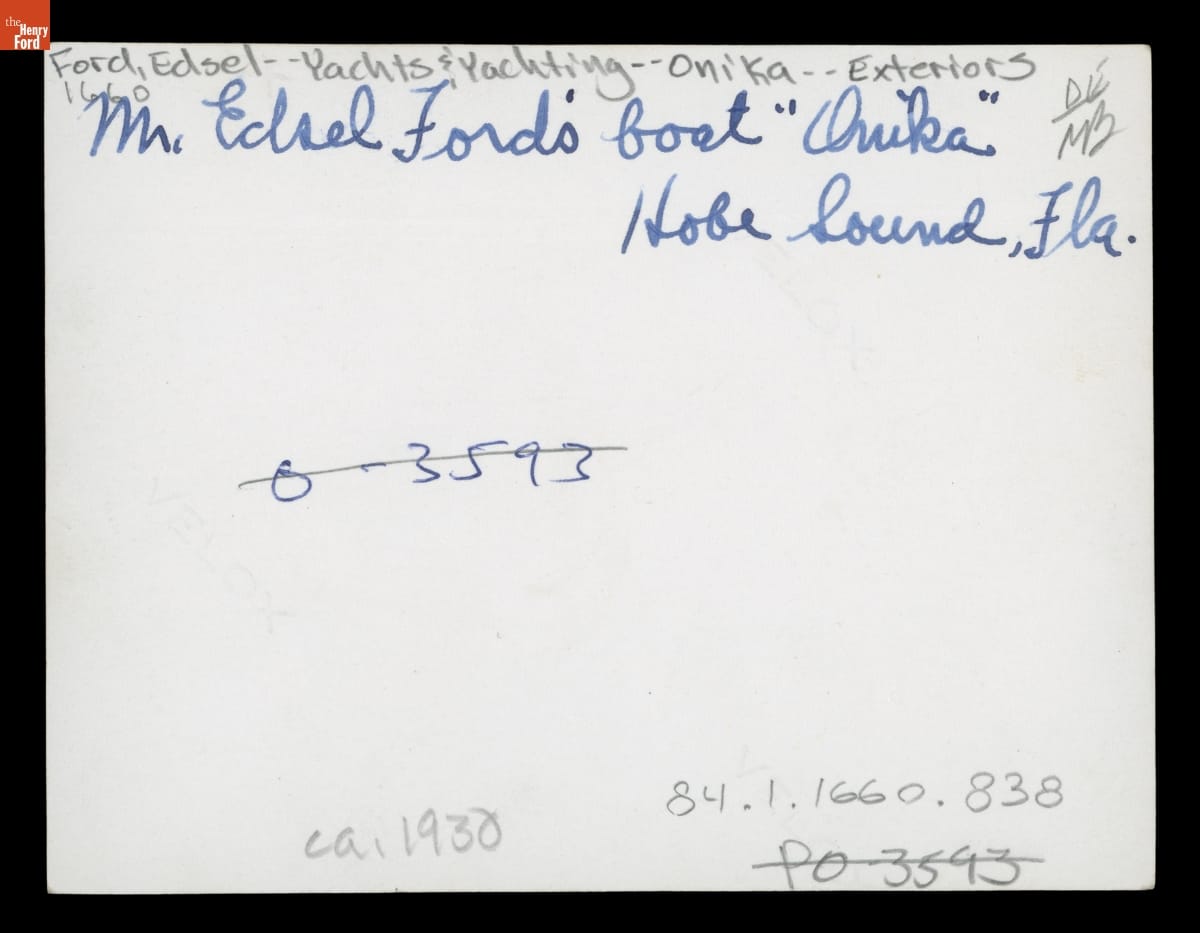 the
Henry
Ford
Ford, Edsel--Yachts & Yachting--Onika--Exteriors
1660
Mr. Edsel Ford's boat "Onika"
Hobe Sound, Fla.
0-3593
84.1.1660.838
ca. 1930
PO 3593